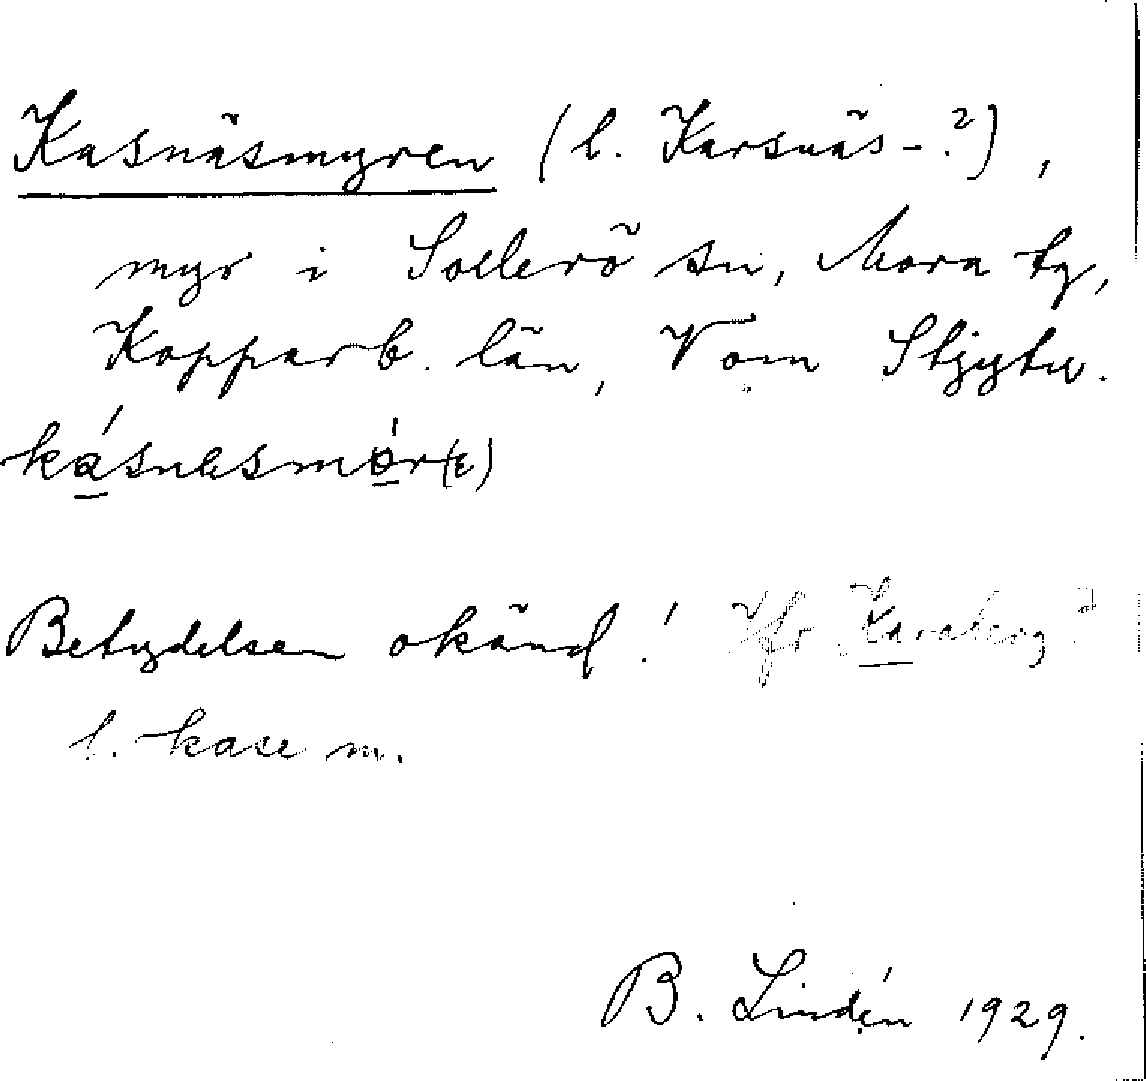 Kasnäsmyren (l. Karsnäs-?),
myr i Sollerö sn, Mora tg,
Kopparb. län, V om
kásnɛsmór(ɛ)
Betydelsen okänd! Jfr
l. kase m.
B. Lindén 1929.